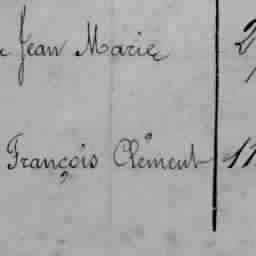 Jean Marie 2
François Clément 11